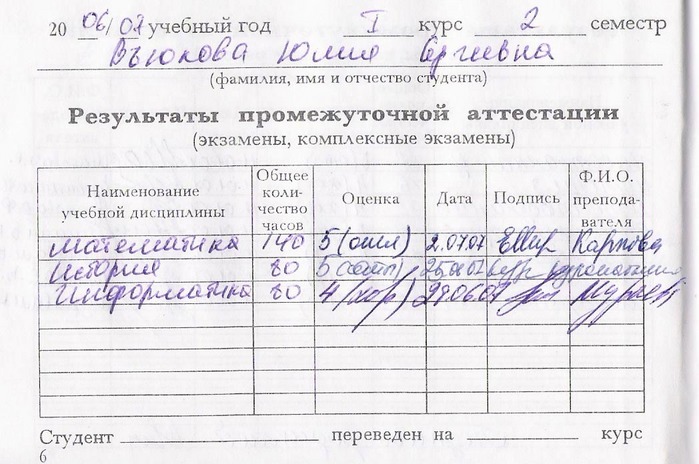 20 06/07 учебный год I курс 2 семестр
Вьюкова Юлия
(фамилия, имя и отчество студента)
Результаты промежуточной аттестации
(экзамены, комплексные экзамены)
Наименование учебной дисциплины Общее количество часов Оценка Дата Подпись Ф.И.О. преподавателя
математика 140 5 (отл) 2.07.07 Карпова
история 80 5 (отл)
Информатика 80 4 (хор) 29.06.07
Студент переведен на курс
6